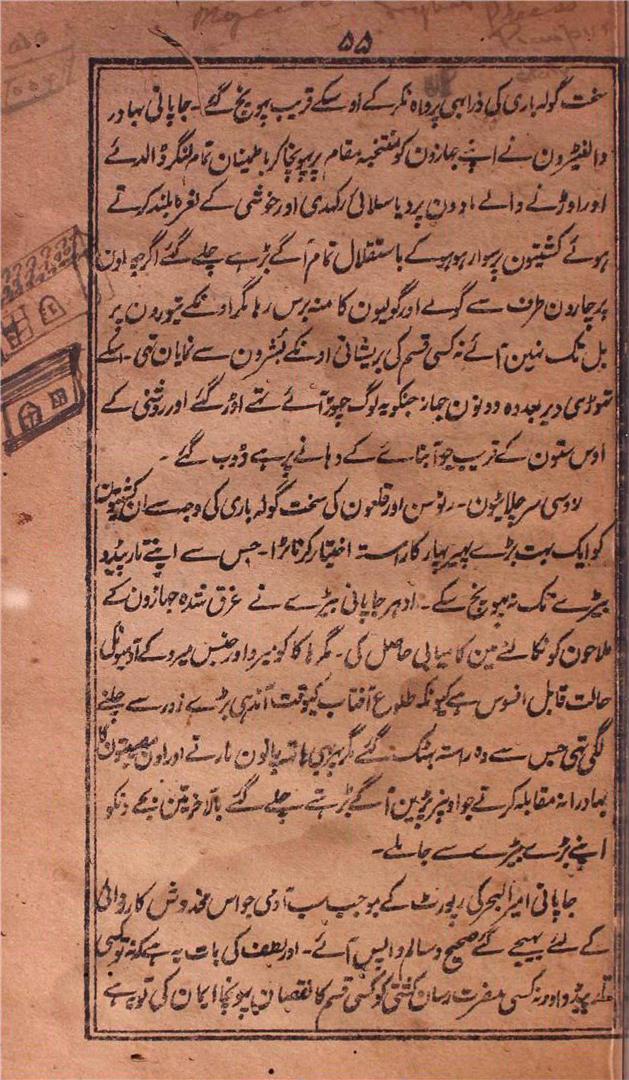 ۵۵
سخت گولہ باری کی ذرا بہی پرواہ نکر کے اوسکے قریب پہونچ گئے ۔ جاپانی بہادر
والنٹیرون نے اپنے جہازون کو منتخبہ مقام پر پہونچا کر باطمینان تمام لنگر ڈالدئے
اور اوڑنے والے مادون پر دیا سلائی رکہدی اور خوشی کے نعرہ بلند کرتے
ہوئے کشتیون پر سوار ہو ہو کے با ستقلال تمام آگے بڑہے چلے گئے اگرچہ اون
پر چارون طرف سے گولے اور گولیون کا منہ برس رہا مگر اونکے تیورون پر
بل تک نہین آئے نہ کسی قسم کی پریشانی اونکے بشرون سے نمایان تہی ۔ اسکے
تہوڑی دیر بعد وہ دونون جہاز جنکو یہ لوگ چہوڑ آئے تہے اوڑ گئے اور روشنی کے
اوس ستون کے قریب جو آبنائے کے دہانے پر ہے ڈوب گئے ۔
لاوسی سرچلائیٹون ۔ ریٹوسن اور قلعون کی سخت گولہ باری کی وجہ سے ان کشتیون
کو ایک بہت بڑے پہیر پہار کا راستہ اختیار کرنا پڑا ۔ جس سے اپنے تارپیڈو
بیڑے تک نہ پہونچ سکے ۔ ادہر جاپانی بیڑے نے غرق شدہ جہازون کے
ملاحون کو نکالنے مین کامیابی حاصل کی ۔ مگر ہاکو نیرو اور جنس میرو کے آدمیونکی
حالت قابل افسوس ہے کیونکہ طلوع آفتاب کیوقت آندہی بڑے زور سے چلنے
لگی تہی جس سے وہ راستہ بہٹک گئے مگر پہر بہی ہاتہ پالون مارتے اور اون مصیبتون کا
بہادرانہ مقابلہ کرتے جو اونپر پڑین آگے بڑہتے چلے گئے بالآخر تین بجے دنکو
اپنے بڑے بیڑے سے جا ملے ۔
جاپانی امیر البحر کی رپورٹ کے بموجب سب آدمی جو اس مخدوش کاروائی
کے لئے بہیجے گئے صحیح و سالم واپس آئے ۔ اور لطف کی بات یہ ہے کہ نہ تو کسی
اور نہ کسی مضرت رسان کشتی کو کسی قسم کا نقصان پہونچا ایمان کی تو یہ ہے